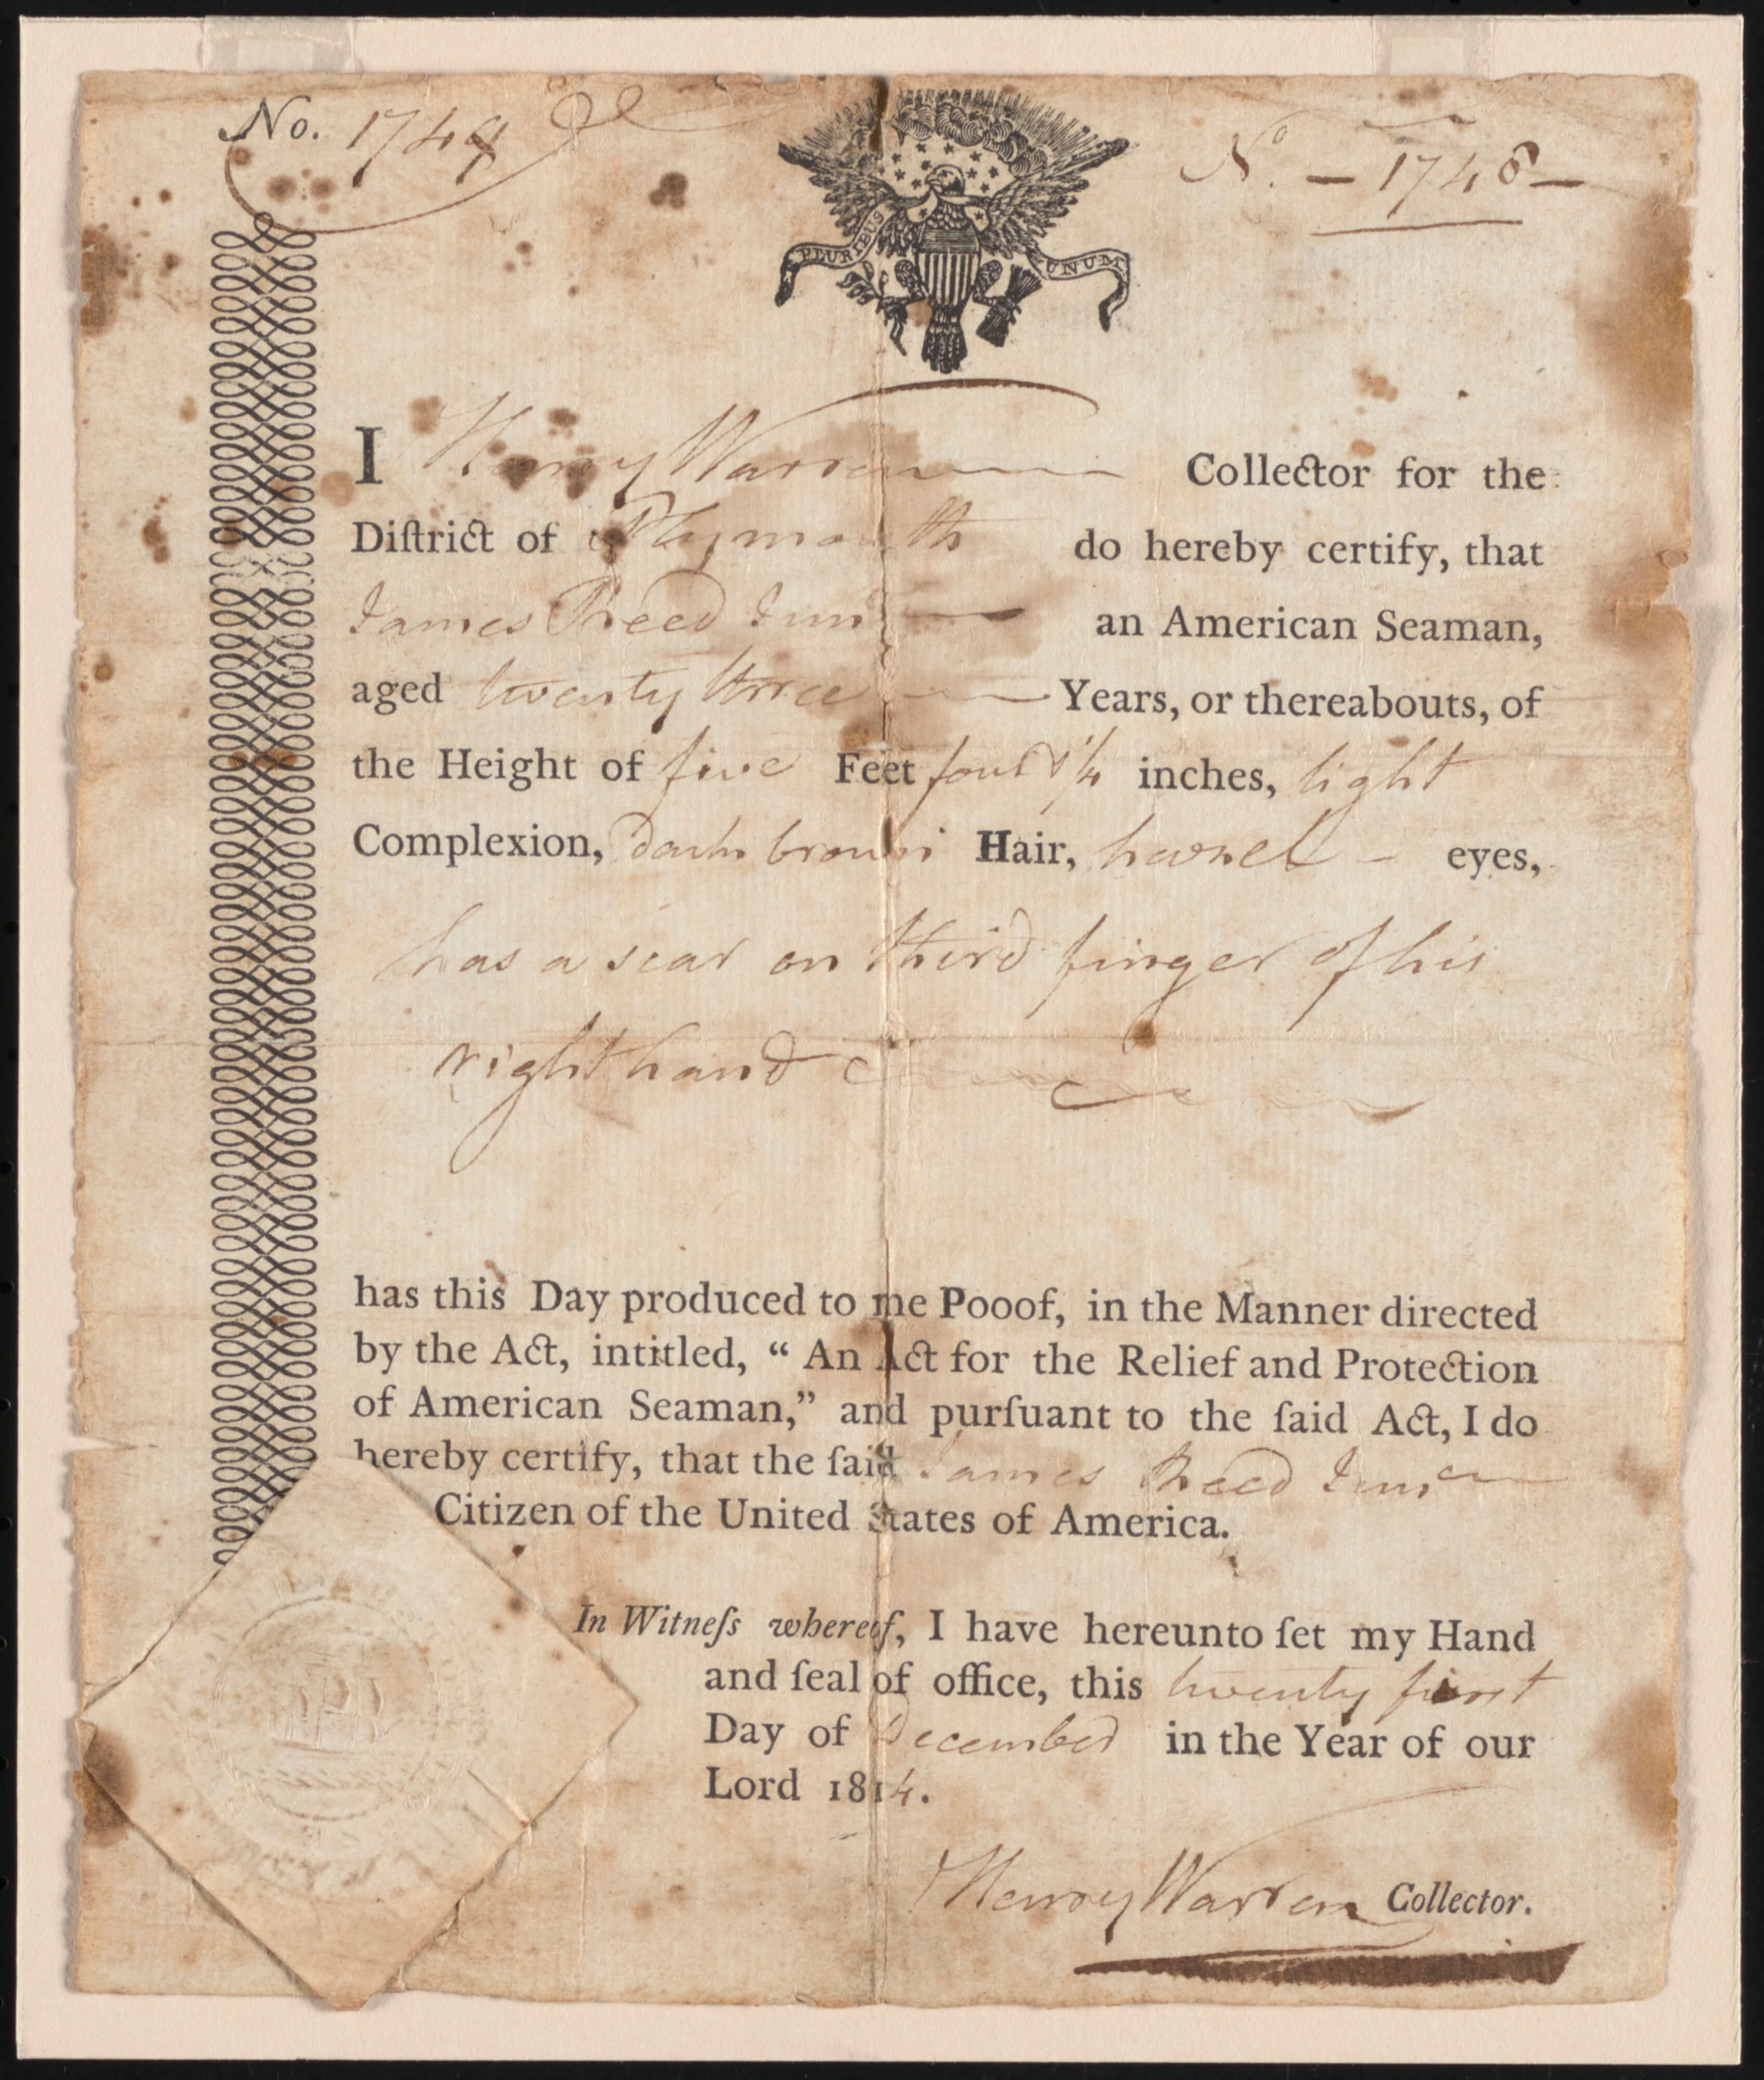 No. 1748
No. — 1748 —
E PLURIBUS UNUM
I Henry Warren Collector for the
Diſtrict of Plymouth do hereby certify, that
James Reed Junr an American Seaman,
aged twenty three Years, or thereabouts, of
the Height of five Feet four & 1/4 inches, light
Complexion, dark brown Hair, hazel - eyes,
has a scar on third finger of his
right hand
has this Day produced to me Pooof, in the Manner directed
by the Act, intitled, “ An Act for the Relief and Protection
of American Seaman,” and purſuant to the ſaid Act, I do
hereby certify, that the ſaid James Reed Junr
Citizen of the United States of America.
In Witneſs whereof, I have hereunto ſet my Hand
and ſeal of office, this twenty first
Day of December in the Year of our
Lord 1814.
Henry Warren Collector.